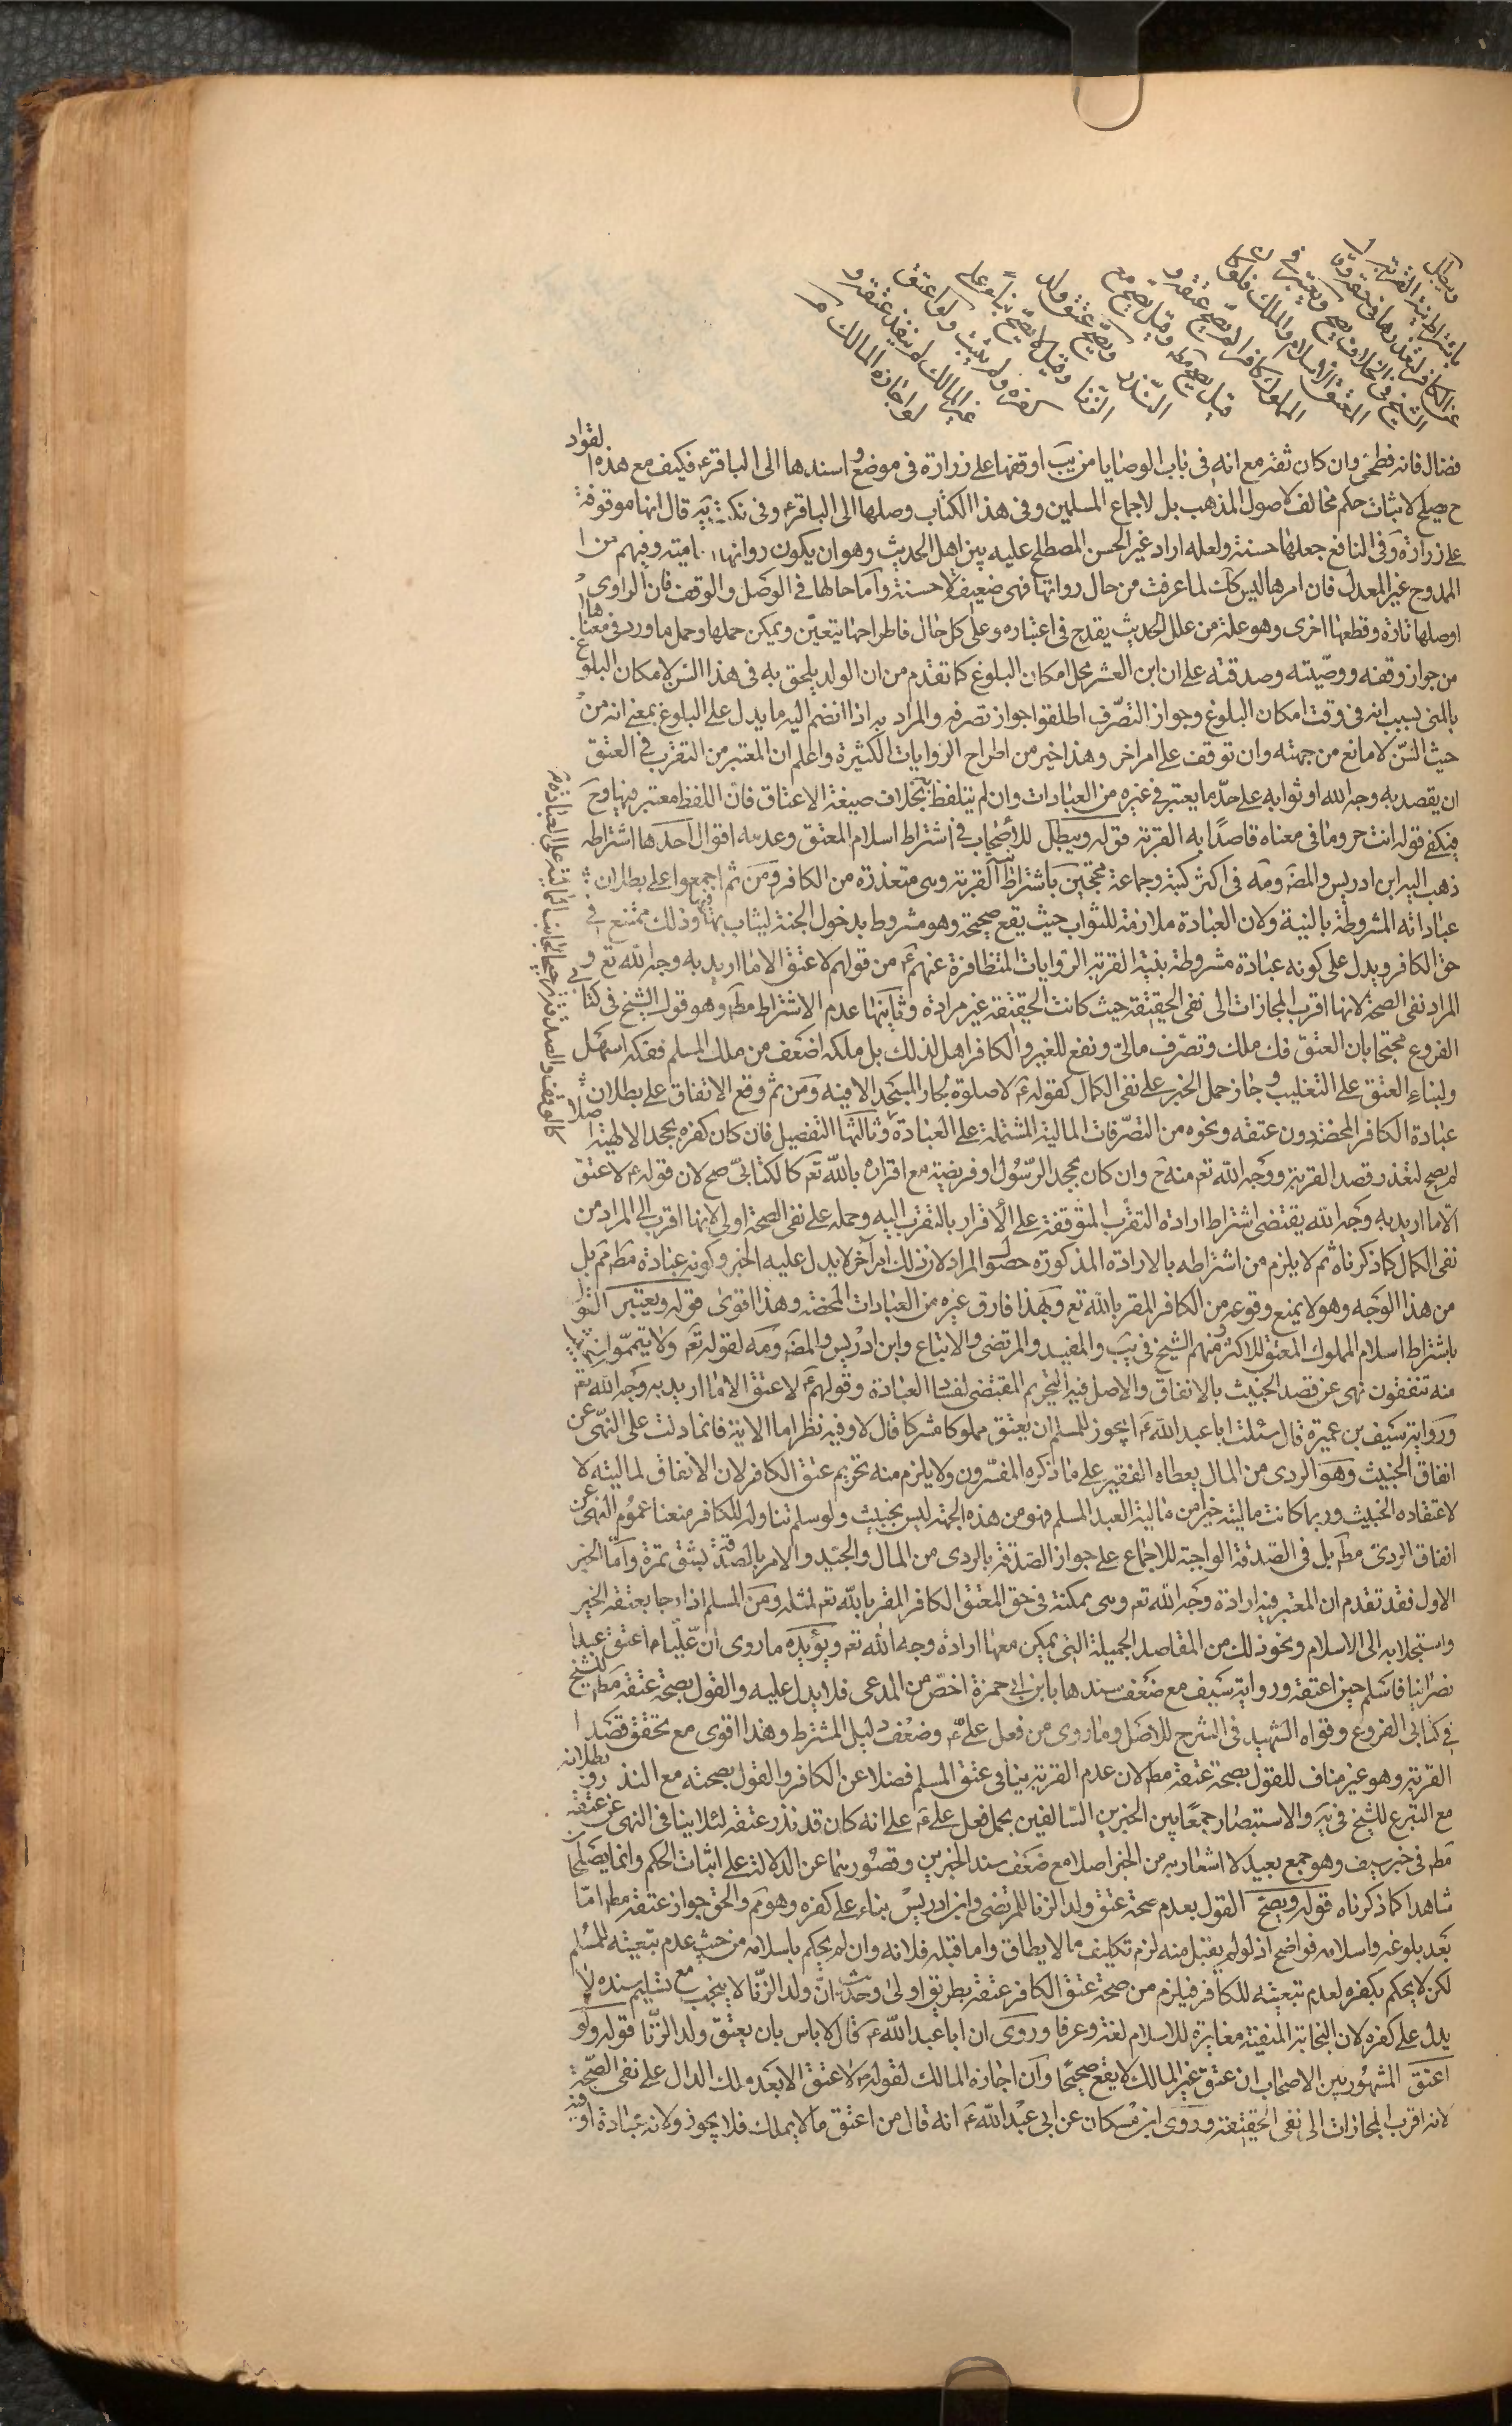 ويبطل
باشتراط نية القربة
عن الكافر لتعذرها في حقه وقا
الشيخ في الخلاف يصح ويعتبر في
المعتق الاسلام والملك فلو كا
المملوك كافرا لم يصح عتقه و
قيل يصح مطه وقيل يصح مع
النذر ويصح عتق ولد
الزنا وقيل لا يصح بناء على
كفره ولم يثبت ولو اعتق
غير المالك لم ينفذ عتقه و
لو اجازه المالك
فضال فانه فطحي وان كان ثقة مع انه في باب الوصايا من يب اوقفها على زرارة في موضع واسندها الى الباقر ع فكيف مع هذه القواد
ح يصلح لاثبات حكم مخالف لاصول المذهب بل لاجماع المسلمين وفي هذا الكتاب وصلها الى الباقر ع وفي نكت يه قال انها موقوفة
على زرارة وفي النافع جعلها حسنة ولعله اراد غير الحسن المصطلح عليه بين اهل الحديث وهو ان يكون رواتها امامية وفيهم من
الممدوح غير المعدل فان امرها ليس كك لما عرفت من حال رواتها فهي ضعيفة لا حسنة واما حالها في الوصل والوقف فان الراوي
اوصلها تارة وقطعها اخرى وهو علة من علل الحديث يقدح في اعتباره وعلى كل حال فاطراحها يتعين ويمكن حملها وحمل ما ورد في معناها
من جواز وقفه ووصيته وصدقته على ان ابن العشر محل امكان البلوغ كما تقدم من ان الولد يلحق به في هذا السن لامكان البلوغ
بالمني بسبب انه في وقت امكان البلوغ وجواز التصرف اطلقوا جواز تصرفه والمراد به اذا انضم اليه ما يدل على البلوغ بمعنى انه من
حيث السن لا مانع من جهته وان توقف على امر اخر وهذا خير من اطراح الروايات الكثيرة واعلم ان المعتبر من التقرب في العتق
ان يقصد به وجه الله او ثوابه على حد ما يعتبر في غيره من العبادات وان لم يتلفظ به بخلاف صيغة الاعتاق فان اللفظ معتبر فيها وح
فيكفي قوله انت حر وما في معناه قاصدا به القربة قوله ويبطل للاصحاب في اشتراط اسلام المعتق وعدمه اقوال احدها اشتراطه
ذهب اليه ابن ادريس والمضر ومه في اكثر كتبه وجماعة محتجين باشتراط نية القربة وهي متعذرة من الكافر ومن ثم اجمعوا على بطلان
عباداته المشروطة بالنية ولان العبادة ملازمة للثواب حيث يقع صحيحة وهو مشروط بدخول الجنة ليثاب بها فيها وذلك ممتنع في
حق الكافر ويدل على كونه عبادة مشروطة بنية القربة الروايات المتظافرة عنهم ع من قولهم لا عتق الا ما اريد به وجه الله تع و
المراد نفي الصحة لانها اقرب المجازات الى نفي الحقيقة حيث كانت الحقيقة غير مرادة وثانيها عدم الاشتراط مطه وهو قول الشيخ في كتابي
الفروع محتجا بان العتق فك ملك وتصرف مالي ونفع للغير والكافر اهل لذلك بل ملكه اضعف من ملك المسلم ففكه اسهل
ولبناء العتق على التغليب وجاز حمل الخبر على نفي الكمال كقوله ع لا صلوة لجار المسجد الا فيه ومن ثم وقع الاتفاق على بطلان
عبادة الكافر المحضة دون عتقه ونحوه من التصرفات المالية المشتملة على العبادة وثالثها التفصيل فان كان كفره بجحد الالهية اصلا
لم يصح لتعذر قصد القربة ووجه الله تعم منه ح وان كان بجحد الرسول او فريضة مع اقراره بالله تع كالكتابي صح لان قوله ع لا عتق
الا ما اريد به وجه الله يقتضي اشتراط ارادة التقرب المتوقفة على الاقرار بالمتقرب اليه وحمله على نفي الصحة اولى لانها اقرب الى المراد من
نفي الكمال كما ذكرناه ثم لا يلزم من اشتراطه بالارادة المذكورة حصول المراد لان ذلك امر اخر لا يدل عليه الخبر وكونه عبادة مطه ثم بل
من هذا الوجه وهو لا يمنع وقوعه من الكافر المقر بالله تع وبهذا فارق غيره من العبادات المحضة وهذا اقوى قوله ويعتبر القول
باشتراط اسلام المملوك المعتق للاكثر ومنهم الشيخ في يب والمفيد والمرتضى والاتباع وابن ادريس والمضر ومه لقوله تع ولا تيمموا الخبيث
منه تنفقون نهى عن قصد الخبيث بالانفاق والاصل فيه التحريم المقتضي لفساد العبادة وقولهم ع لا عتق الا ما اريد به وجه الله تع
ورواية سيف بن عميرة قال سئلت ابا عبد الله ع ايجوز للمسلم ان يعتق مملوكا مشركا قال لا وفيه نظر اما الاية فانما دلت على النهي عن
انفاق الخبيث وهو الردي من المال يعطاه الفقير على ما ذكره المفسرون ولا يلزم منه تحريم عتق الكافر لان الانفاق لماليته لا
لاعتقاده الخبيث وربما كانت ماليته خيرا من مالية العبد المسلم فهو من هذه الجهة ليس بخبيث ولو سلم تناوله للكافر منعنا عموم النهي عن
انفاق الردي مطه بل في الصدقة الواجبة للاجماع على جواز الصدقة بالردي من المال والجيد والامر بالصدقة بشق تمرة واما الخبر
الاول فقد تقدم ان المعتبر فيه ارادة وجه الله تعم وهي ممكنة في حق المعتق الكافر المقر بالله تعم لمثله ومن المسلم اذا رجا بعتقه الخير
واستجلابه الى الاسلام ونحو ذلك من المقاصد الجميلة التي يمكن معها ارادة وجه الله تعم ويؤيده ما روى ان عليا ع اعتق عبدا
نصرانيا فاسلم حين اعتقه ورواية سيف مع ضعف سندها بابن ابي حمزة اخص من المدعى فلا يدل عليه والقول بصحة عتقه مطه للشيخ
في كتابي الفروع وقواه الشهيد في الشرح للاصل وما روى من فعل علي ع وضعف دليل المشترط وهذا اقوى مع تحقق قصد
القربة وهو غير مناف للقول بصحة عتقه مطه لان عدم القربة ينافي عتق المسلم فضلا عن الكافر والقول بصحته مع النذر وبطلانه
مع التبرع للشيخ في يه والاستبصار جمعا بين الخبرين السالفين بحمل فعل علي ع على انه كان قد نذر عتقه لئلا ينافي النهي عن عتقه
مطه في خبر سيف وهو جمع بعيد لا اشعار به من الخبر اصلا مع ضعف سند الخبرين وقصورهما عن الدلالة على اثبات الحكم وانما يصلحان
شاهدا كما ذكرناه قوله ويصح القول بعدم صحة عتق ولد الزنا للمرتضى وابن ادريس بناء على كفره وهو مم والحق جواز عتقه مطه اما
بعد بلوغه واسلامه فواضح اذ لو لم يقبل منه لزم تكليف ما لا يطاق واما قبله فلانه وان لم يحكم باسلامه من حيث عدم تبعيته للمسلم
لكن لا يحكم بكفره لعدم تبعيته للكافر فيلزم من صحة عتق الكافر عتقه بطريق اولى وحديث ان ولد الزنا لا ينجب مع تسليم سنده لا
يدل على كفره لان النجابة المنفية مغايرة للاسلام لغة وعرفا وروى ان ابا عبد الله ع قال لا باس بان يعتق ولد الزنا قوله ولو
اعتق المشهور بين الاصحاب ان عتق غير المالك لا يقع صحيحا وان اجازه المالك لقوله ع لا عتق الا بعد ملك الدال على نفي الصحة
لانه اقرب المجازات الى نفي الحقيقة وروى ابن مسكان عن ابي عبد الله ع انه قال من اعتق ما لا يملك فلا يجوز ولانه عبادة او فيه
كالوقف والصدقة ترجيحا لجانب المالية على العبادة